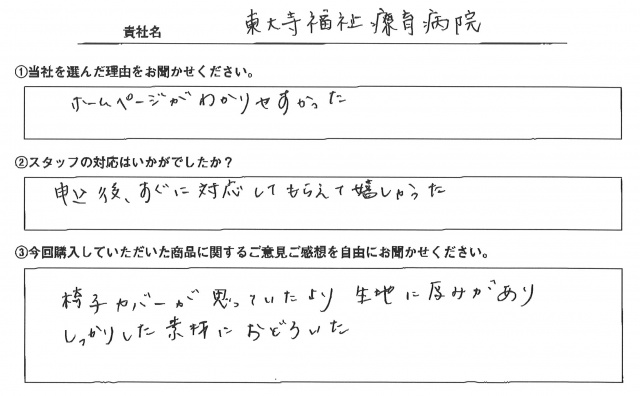 貴社名 東大寺福祉療育病院
①当社を選んだ理由をお聞かせください。
ホームページがわかりやすかった
②スタッフの対応はいかがでしたか？
申込後、すぐに対応してもらえて嬉しかった
③今回購入していただいた商品に関するご意見ご感想を自由にお聞かせください。
椅子カバーが思っていたより生地に厚みがあり
しっかりした素材におどろいた